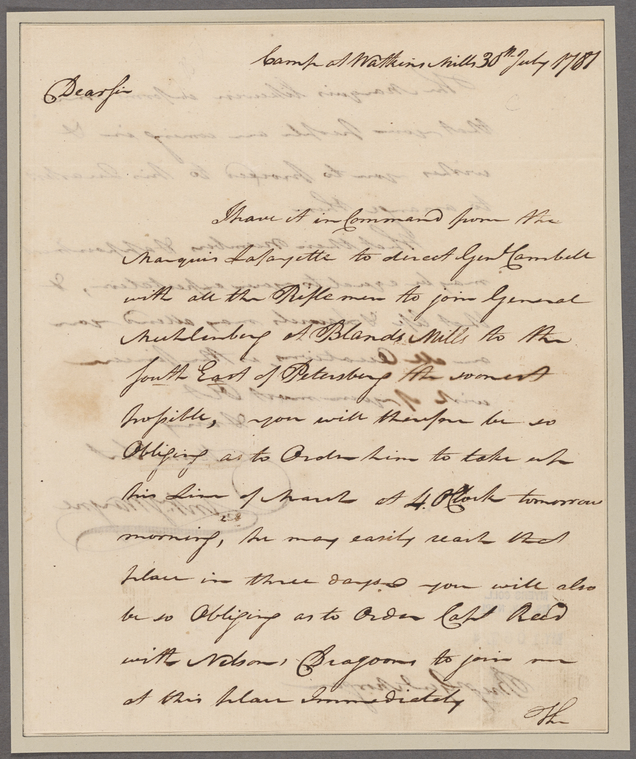 Camp at Watkins Mills 30th July 1781
Dear Sir
I have it in Command from the
Marquis Lafayette to direct Genl Cambell
with all the Rifle men to join General
Muhlenberg at Blands Mills to the
South East of Petersburg the soonest
possible, you will therefore be so
Obliging as to Order him to take up
his Line of March at 4 OClock tomorrow
morning, he may easily reach that
place in three days you will also
be so Obliging as to Order Capt Reed
with Nelsons Dragoons to join me
at this place Immediately
The